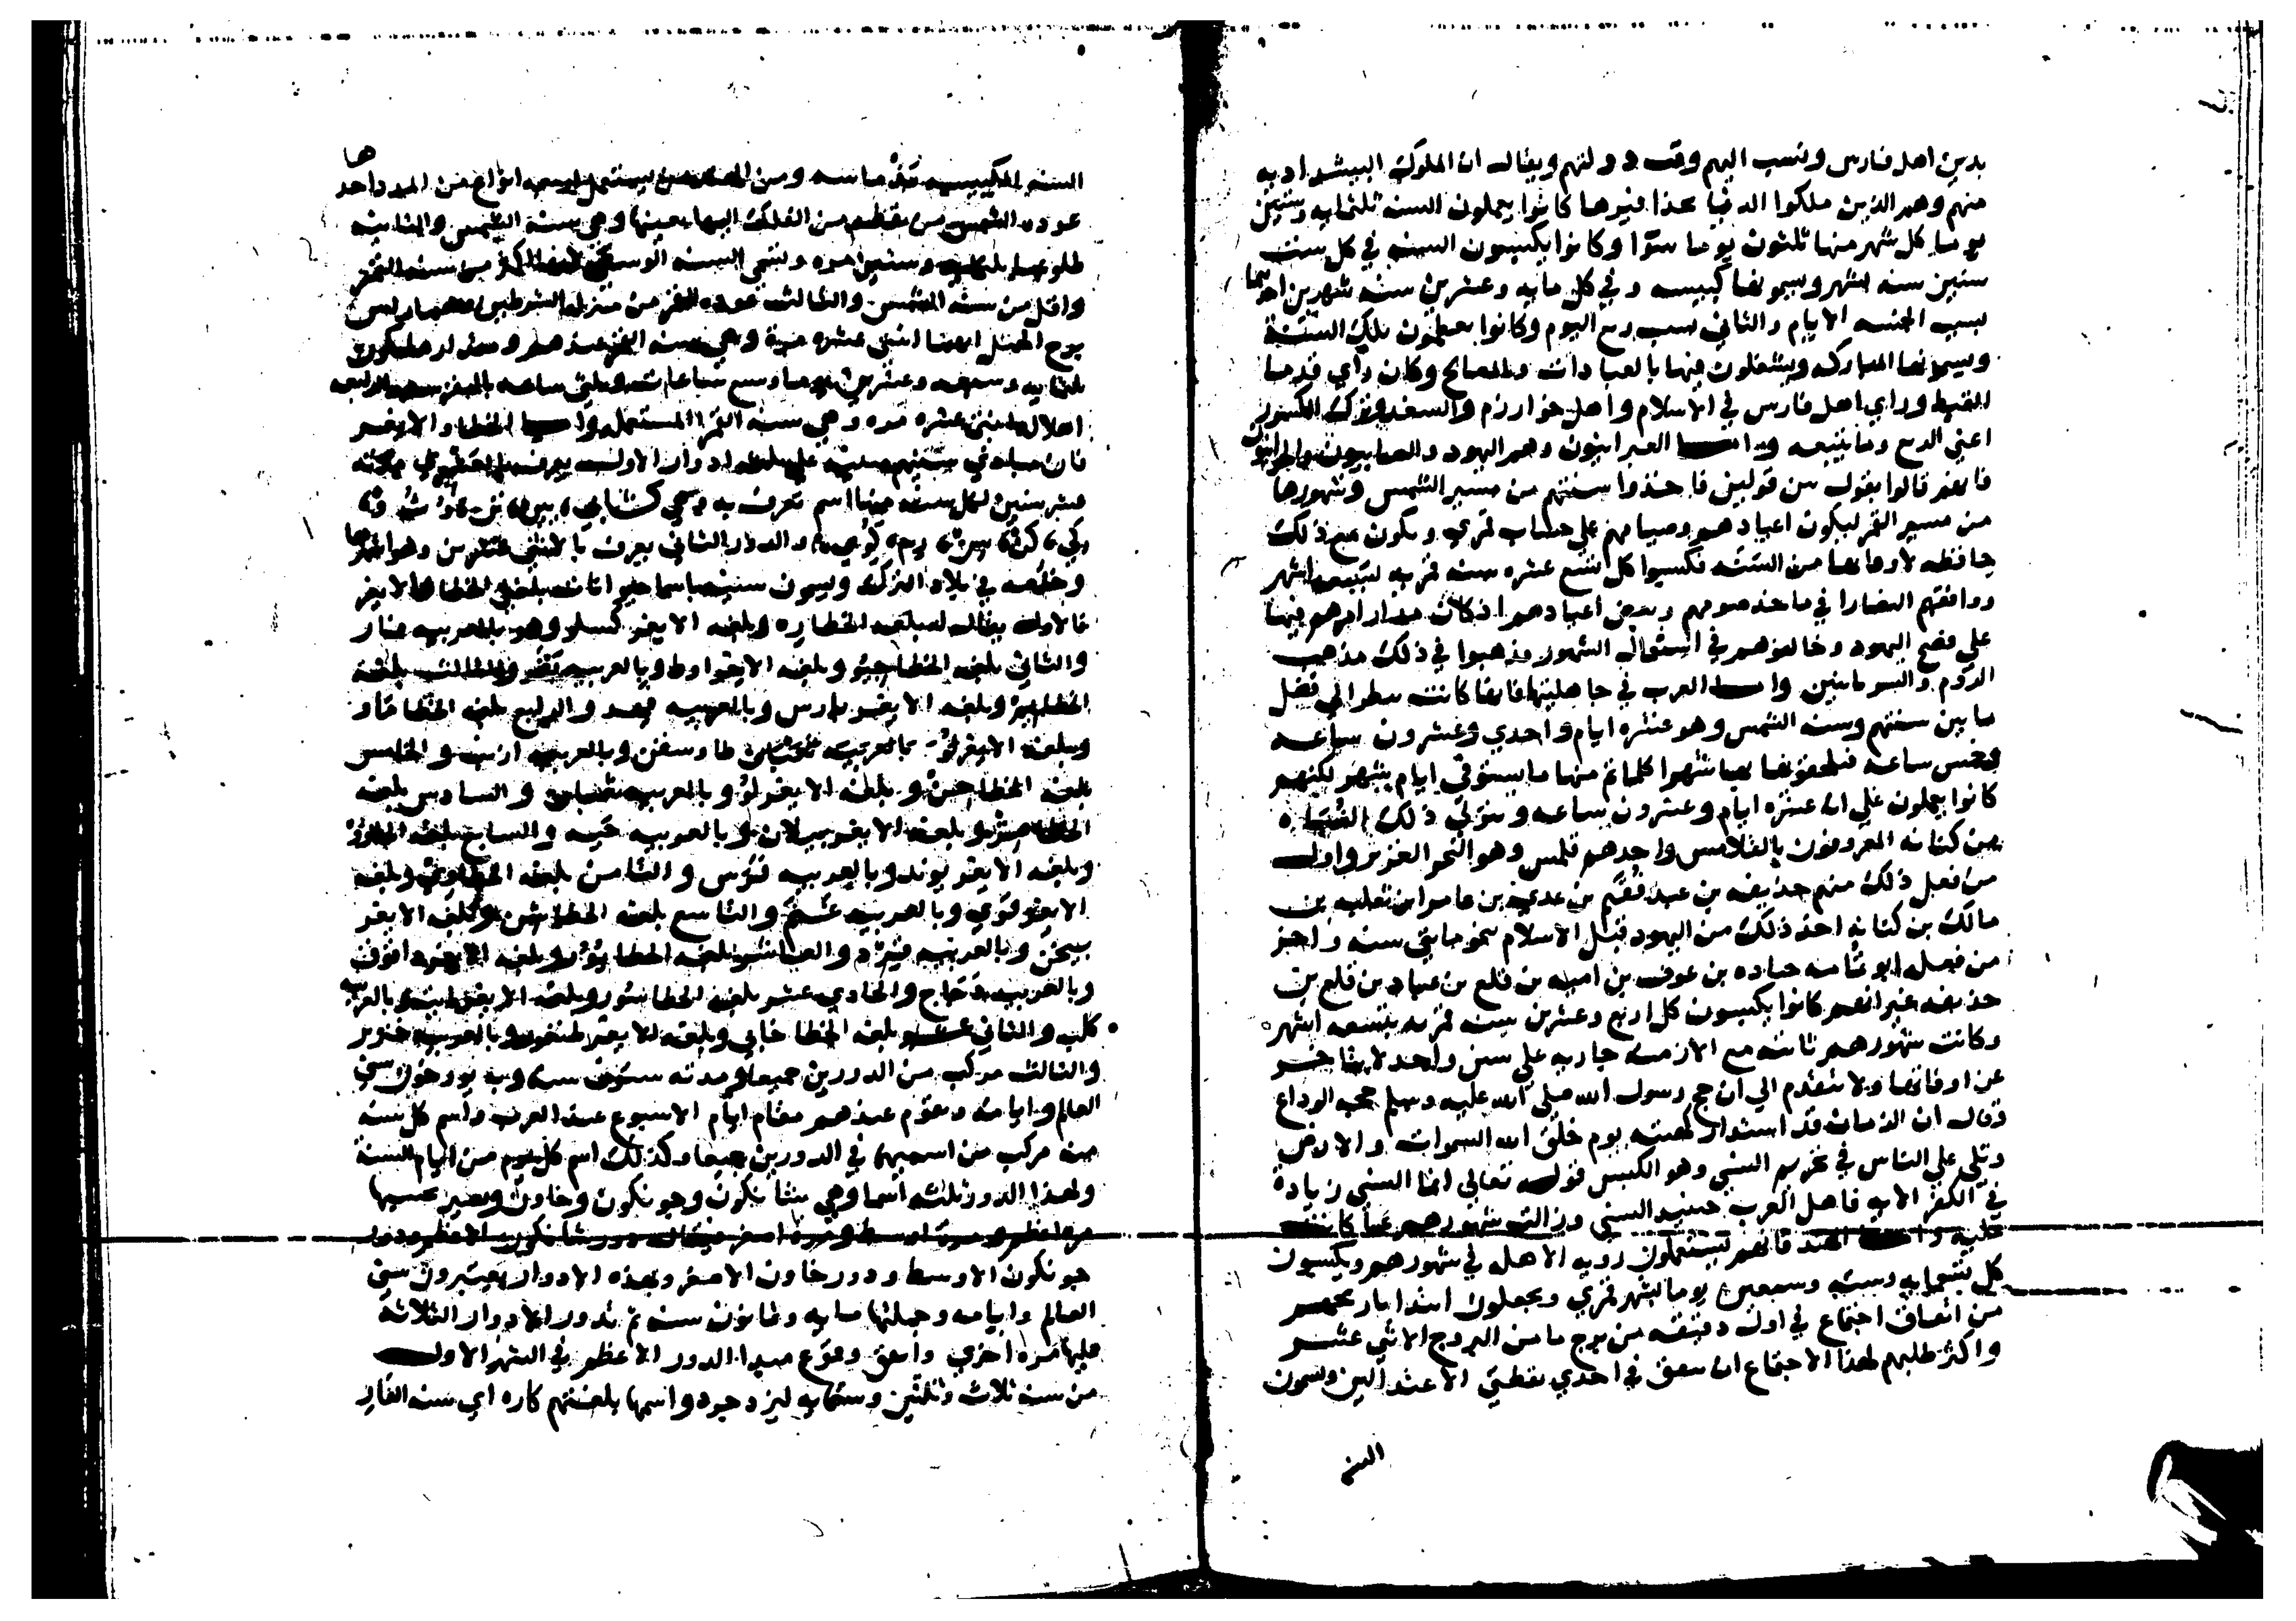 بدين اهل فارس ونسب اليهم وقت دولتهم ويقال ان الملوك البيشداديه
منهم وهم الذين ملكوا الدنيا بحذافيرها كانوا يعملون السنه ثلثمايه وستين
يوما كل شهر منها ثلثون يوما سوا وكانوا يكبسون السنه في كل ست
سنين سنه بشهر ويسمونها كبيسه وفي كل مايه وعشرين سنه شهرين احدهما
بسبب الخمسه الايام والثاني بسبب ربع اليوم وكانوا يعظمون تلك السنة
ويسمونها المباركه ويشتغلون فيها بالعبادات والمصالح وكان راي قدما
القبط وراي اهل فارس في الاسلام واهل خوارزم والسغد وترك الكسور
اعني الربع وما يتبعه واما العبرانيون وهم اليهود والصابيون والحرانيون
فانهم قالوا بقول بين قولين فاخذوا سنتهم من مسير الشمس وشهورها
من مسير القمر ليكون اعيادهم وصيامهم على حساب قمري ويكون مع ذلك
حافظه لاوقاتها من السنه فكبسوا كل تسع عشره سنه قمريه بسبعه اشهر
ووافقهم النصارا في ماخذ صومهم وبعض اعيادهم اذ كان مدار امرهم فيها
على فصح اليهود وخالفوهم في استعمال الشهور وذهبوا في ذلك مذهب
الروم والسريانيين واما العرب في جاهليتها فانها كانت تنظر الى فضل
ما بين سنتهم وسنه الشمس وهو عشره ايام واحدي وعشرون ساعه
وخمس ساعه فيلحقونها بها شهرا كلما تم منها ما يستوفي ايام شهر لكنهم
كانوا يعملون علي انه عشره ايام وعشرون ساعه ويتولي ذلك النساه
من كنانه المعروفون بالقلامس واحدهم قلمس وهو البحر الغزير واول
من فعل ذلك منهم حذيفه بن عبد فقيم بن عدي بن عامر ابن ثعلبه بن
مالك بن كنانه اخذ ذلك من اليهود قبل الاسلام بنحو مايتي سنه واخر
من فعله ابو ثمامه جناده بن عوف بن اميه بن قلع بن عباد بن قلع بن
حذيفه غير انهم كانوا يكبسون كل اربع وعشرين سنه قمريه بتسعه اشهر
وكانت شهورهم ثابته مع الازمنه جاريه علي سنن واحد لا يتاخر
عن اوقاتها ولا يتقدم الي ان حج رسول الله صلى الله عليه وسلم حجه الوداع
وقال ان الزمان قد استدار كهيته يوم خلق الله السموات والارض
وتلي علي الناس في تحريم النسي وهو الكبس قوله تعالي انما النسي زيادة
في الكفر الايه فاهمل العرب حينيذ النسي وزالت شهورهم عما كانت
عليه واما الهند فانهم يستعملون رويه الاهله في شهورهم ويكبسون
كل تسعمايه وسته وسبعين يوما بشهر قمري ويجعلون ابتدا تاريخهم
من اتفاق اجتماع في اول دقيقه من برج ما من البروج الاثني عشر
واكثر طلبهم لهذا الاجتماع ان يتفق في احدي نقطتي الاعتدالين ويسمون
السنه
السنه الكبيسه
عوده الشمس من نقطه من الفلك اليها بعينها وهي سنه الشمس والثانيه
طلوعها ثلثمايه وستين مره وتسمي السنه الوسطي لانها اكثر من سنه القمر
واقل من سنه الشمس والثالثه عوده القمر من منزله الشرطين وهما راس
برج الحمل اليها اثنتي عشره مرة وهي سنه القمر عندهم
ثلثمايه وسبعه وعشرين يوما وسبع ساعات وثلثي ساعه بالتقريب والرابعه
اهلاله اثنتي عشره مره وهي سنه القمر المستعمله واما الخطا والايغر
فان مبادي سنينهم مبنيه علي ثلثه ادوار الاول يعرف بالعشري مدته
عشر سنين لكل سنه منها اسم تعرف به
والدور الثاني يعرف بالاثني عشري وهو اشهرها
وخاصه في بلاد الترك ويسمون سنينه باسما حيوانات بلغتي الخطا والايغر
فالاول يقال له بلغه الخطا زه وبلغه الايغر كسكو وهو بالعربيه فار
والثاني بلغه الخطا جيو وبلغه الايغر اوط وبالعربيه بقر والثالث بلغه
الخطا يز وبلغه الايغر بارس وبالعربيه فهد والرابع بلغه الخطا ماو
وبلغه الايغر طاوسغن وبالعربيه ارنب والخامس
بلغه الخطا جن وبلغه الايغر لو وبالعربيه ثعبان والسادس بلغه
الخطا وبلغه الايغر ييلان وبالعربيه حيه والسابع بلغه الخطا وو
وبلغه الايغر يوند وبالعربيه فرس والثامن بلغه الخطا وي وبلغه
الايغر قوي وبالعربيه غنم والتاسع بلغه الخطا شن وبلغه الايغر
بيجن وبالعربيه قرد والعاشر بلغه الخطا يو وبلغه الايغر داقوق
وبالعربيه دجاج والحادي عشر بلغه الخطا شو وبلغه الايغر ايت وبالعربيه
كلب والثاني عشر بلغه الخطا خاي وبلغه الايغر طنغوز وبالعربيه خنزير
والثالث مركب من الدورين جميعا ومدته ستون سنه وبه يورخون سني
العالم وايامه ويقوم عندهم مقام ايام الاسبوع عند العرب واسم كل سنه
منه مركب من اسميها في الدورين جميعا وكذلك اسم كل يوم من ايام السنة
ولهذا الدور ثلثه اسما وهي شانكون وجونكون وخاون ويصير بحسبها
مره اعظم ومره اوسط ومره اصغر فيقال دور شانكون الاعظم ودور
جونكون الاوسط ودور خاون الاصغر وبهذه الادوار يعتبرون سني
العالم وايامه وجملتها مايه وثمانون سنه ثم تدور الادوار الثلاثه
عليها مره اخري واتفق وقوع مبدا الدور الاعظم في الشهر الاول
من سنه ثلاث وثلثين وستمايه ليزدجرد واسمها بلغتهم كاره اي سنه الفار